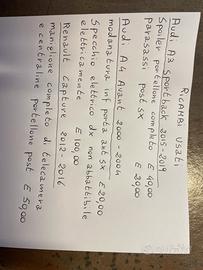 RICAMBI USATI
Audi A3 Sportback 2015-2019
Spoiler portellone completo € 40,00
parasassi post sx € 20,00
Audi A4 Avant 2000-2004
modanatura inf porta ant sx € 20,00
Specchio elettrico dx non abbattibile
elettricamente € 100,00
Renault Capture 2012-2016
maniglione completo di telecamera
e centralina portellone post € 50,00